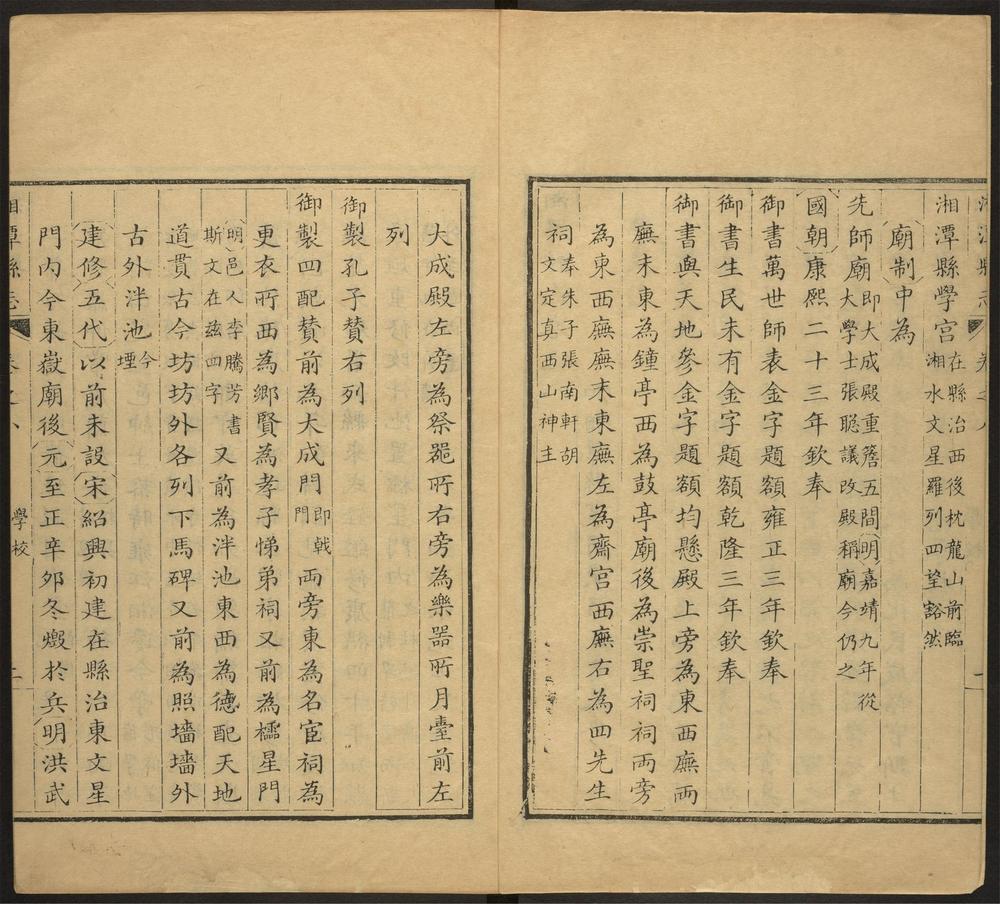 湘潭縣志 卷之八
湘潭縣學宮在縣治西後枕龍山前臨湘水文星羅列四望豁然
廟制中為
先師廟即大成殿重簷五間明嘉靖九年從大學士張聰議改殿稱廟今仍之
國朝康熙二十三年欽奉
御書萬世師表金字題額雍正三年欽奉
御書生民未有金字題額乾隆三年欽奉
御書與天地參金字題額均懸殿上旁為東西廡兩
廡末東為鐘亭西為鼓亭廟後為崇聖祠祠兩旁
為東西廡廡末東廡左為齋宮西廡右為四先生
祠奉朱子張南軒胡文定真西山神主
大成殿左旁為祭噐所右旁為樂器所月臺前左
列
御製孔子贊右列
御製四配贊前為大成門即戟門兩旁東為名宦祠為
更衣所西為鄉賢為孝子悌弟祠又前為櫺星門
明邑人李騰芳書斯文在茲四字又前為泮池東西為德配天地
道貫古今坊坊外各列下馬碑又前為照墻墻外
古外泮池今堙
建修五代以前未設宋紹興初建在縣治東文星
門內今東嶽廟後元至正辛卯冬燬於兵明洪武
湘潭縣志 卷之八 學校 二